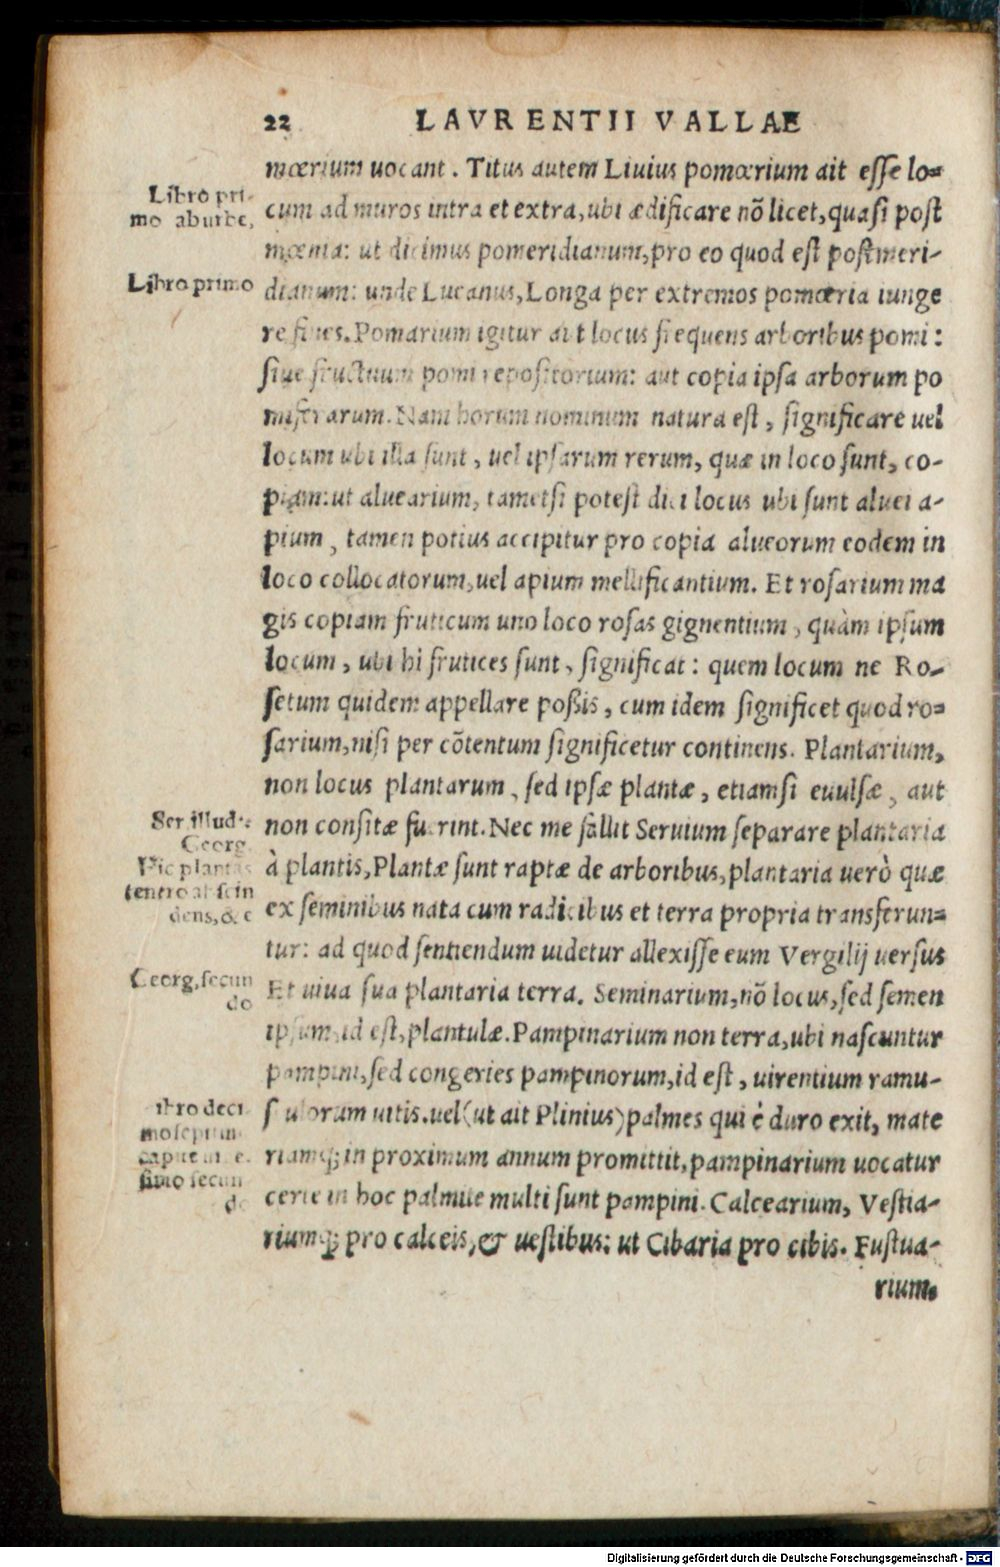 22 LAVRENTII VALLAE
mœrium uocant. Titus autem Liuius pomœrium ait esse lo=
Libro pri-
cum ad muros intra et extra, ubi ædificare nõ licet, quasi post
mo ab urbe,
mœnia: ut dicimus pomeridianum, pro eo quod est postmeri-
Libro primo
dianum: unde Lucanus, Longa per extremos pomœria iunge
re fines. Pomarium igitur aut locus frequens arboribus pomi:
siue fructuum pomi repositorium: aut copia ipsa arborum po
miferarum. Nam horum nominum natura est, significare uel
locum ubi illa sunt, uel ipsarum rerum, quæ in loco sunt, co-
piam: ut aluearium, tametsi potest dici locus ubi sunt aluei a-
pium, tamen potius accipitur pro copia alueorum eodem in
loco collocatorum, uel apium mellificantium. Et rosarium ma
gis copiam fruticum uno loco rosas gignentium, quàm ipsum
locum, ubi hi frutices sunt, significat: quem locum ne Ro-
setum quidem appellare possis, cum idem significet quod ro=
sarium, nisi per cõtentum significetur continens. Plantarium,
non locus plantarum, sed ipsæ plantæ, etiamsi euulsæ, aut
Ser. illud
non consitæ fuerint. Nec me fallit Seruium separare plantaria
Georg.
Hic plantas
à plantis, Plantæ sunt raptæ de arboribus, plantaria uerò quæ
tenero abscin
dens, & c
ex seminibus nata cum radicibus et terra propria transferun=
tur: ad quod sentiendum uidetur allexisse eum Vergilij uersus
Georg. secun
Et uiua sua plantaria terra. Seminarium, nõ locus, sed semen
do
ipsum, id est, plantulæ. Pampinarium non terra, ubi nascuntur
pampini, sed congeries pampinorum, id est, uirentium ramu-
ibro deci
sculorum uitis. uel (ut ait Plinius) palmes qui è duro exit, mate
mosepti
riamq; in proximum annum promittit, pampinarium uocatur
secun
certe in hoc palmite multi sunt pampini. Calcearium, Vestia-
do
riumq; pro calceis, & uestibus: ut Cibaria pro cibis. Fustua-
rium,
Digitalisierung gefördert durch die Deutsche Forschungsgemeinschaft - DFG